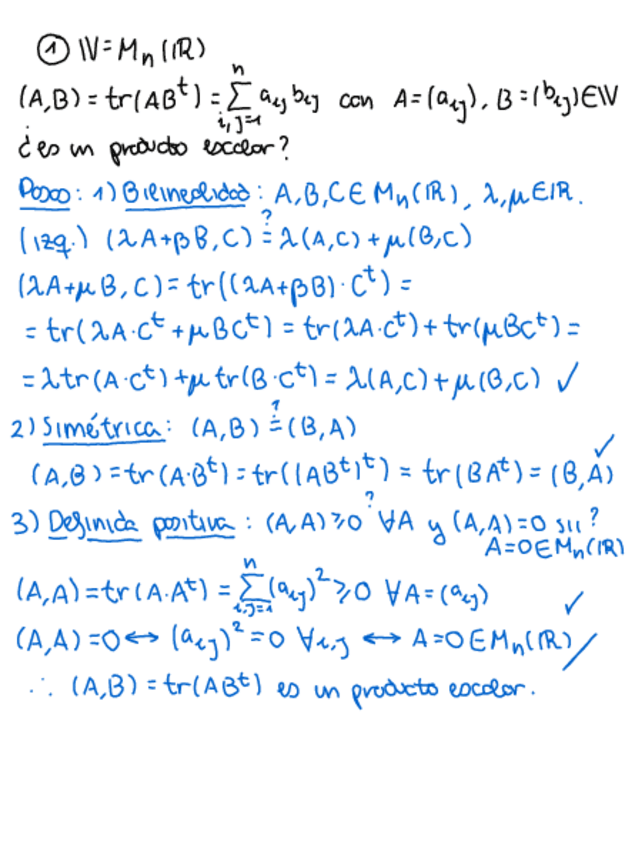 ① 𝕍 = Mₙ(ℝ)
(A,B) = tr(ABᵗ) = ∑ⁿᵢ,ⱼ₌₁ aᵢⱼ bᵢⱼ con A=(aᵢⱼ), B=(bᵢⱼ)∈𝕍
¿es un producto escalar?
Paso: 1) Bilinealidad: A,B,C ∈ Mₙ(ℝ), λ,μ∈ℝ.
(izq.) (λA+βB,C) ≟ λ(A,C) + μ(B,C)
(λA+μB,C) = tr((λA+βB)·Cᵗ) =
= tr(λA·Cᵗ + μBCᵗ) = tr(λA·Cᵗ) + tr(μBCᵗ) =
= λtr(A·Cᵗ) + μtr(B·Cᵗ) = λ(A,C) + μ(B,C) ✓
2) Simétrica: (A,B) ≟ (B,A)
(A,B) = tr(A·Bᵗ) = tr((ABᵗ)ᵗ) = tr(BAᵗ) = (B,A) ✓
3) Definida positiva: (A,A) ≥ 0 ? ∀A y (A,A)=0 sii ?
A=0∈Mₙ(ℝ)
(A,A) = tr(A·Aᵗ) = ∑ⁿᵢ,ⱼ₌₁ (aᵢⱼ)² ≥ 0 ∀A=(aᵢⱼ) ✓
(A,A) = 0 ↔ (aᵢⱼ)² = 0 ∀i,j ↔ A=0∈Mₙ(ℝ) ✓
∴ (A,B) = tr(ABᵗ) es un producto escalar.